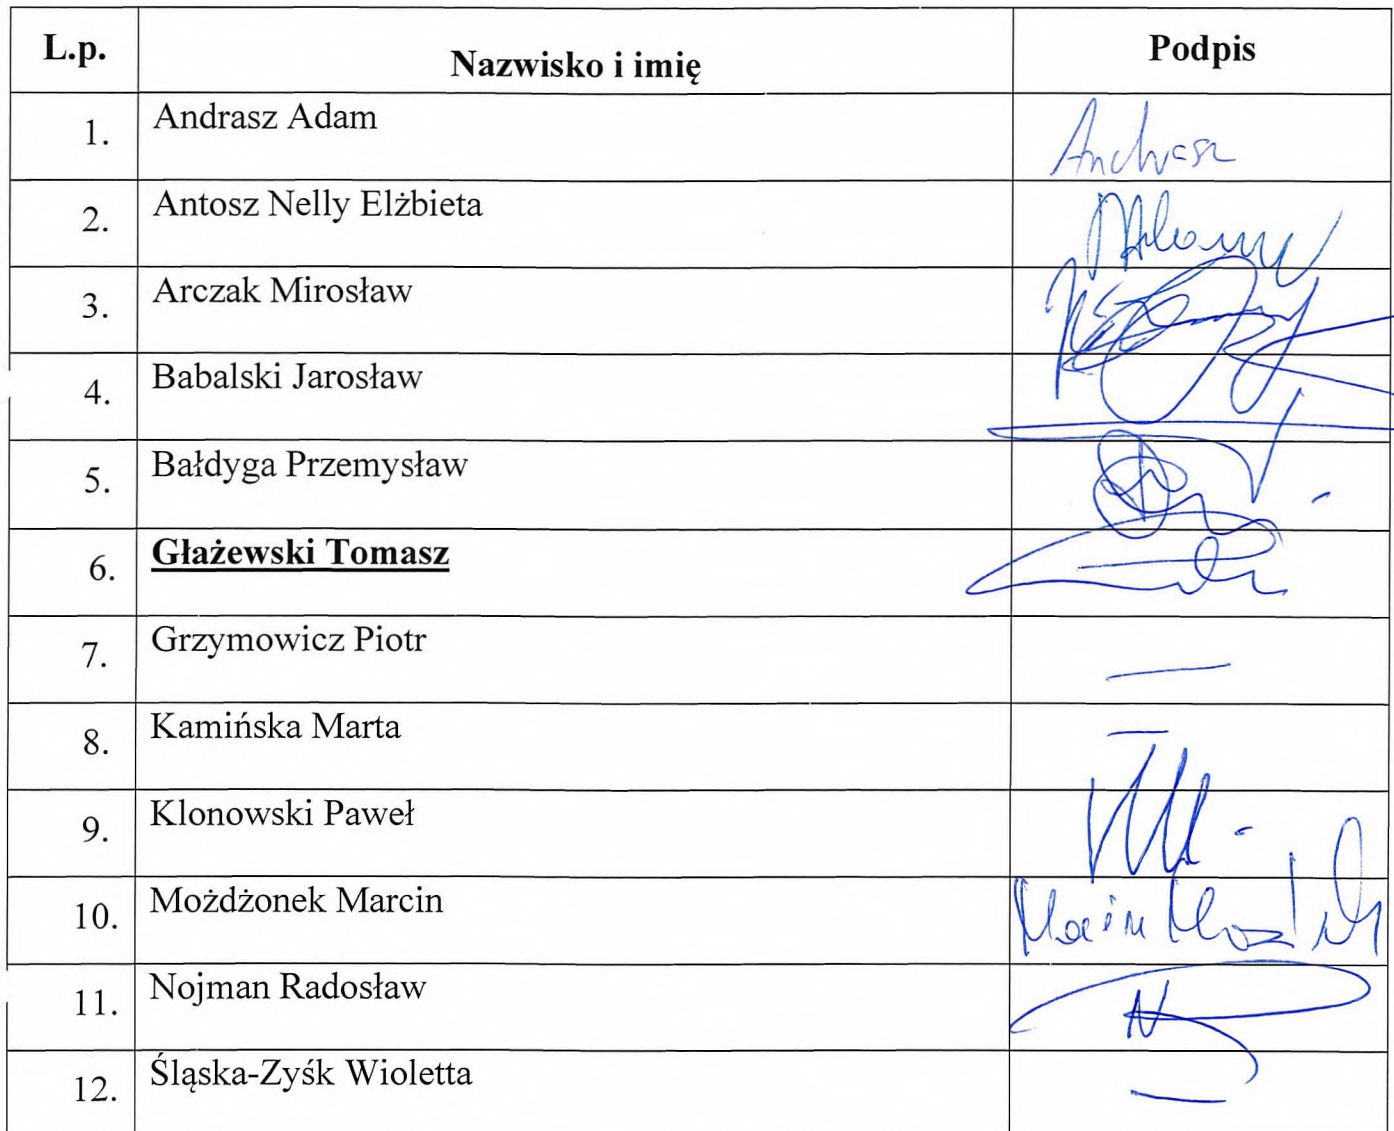 L.p. Nazwisko i imię Podpis
1. Andrasz Adam Andrasz
2. Antosz Nelly Elżbieta
3. Arczak Mirosław
4. Babalski Jarosław
5. Bałdyga Przemysław
6. Głażewski Tomasz
7. Grzymowicz Piotr —
8. Kamińska Marta —
9. Klonowski Paweł
10. Możdżonek Marcin Marcin
11. Nojman Radosław
12. Śląska-Zyśk Wioletta —